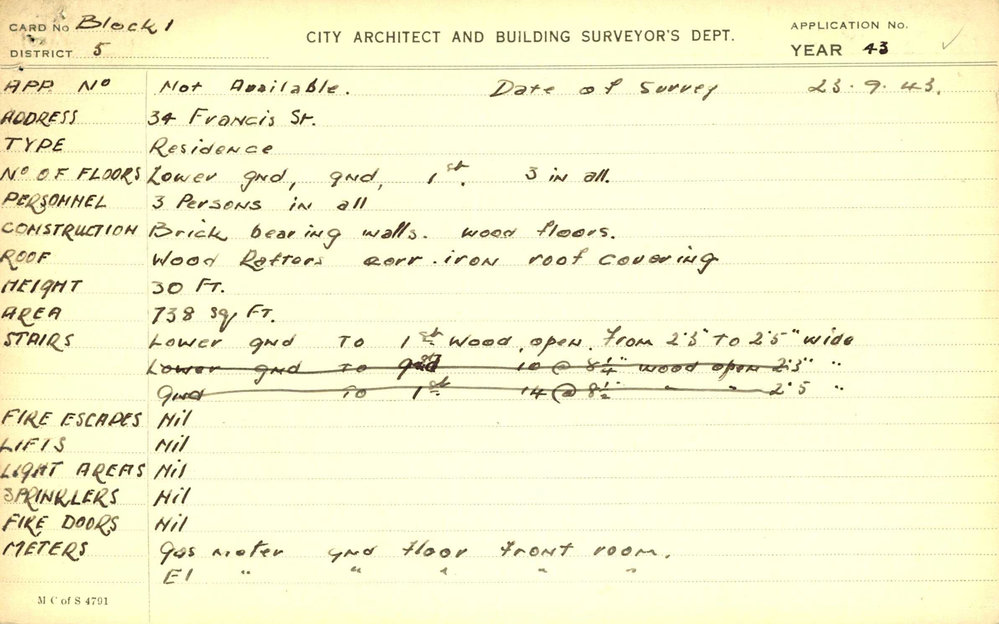 CARD No Block 1
CITY ARCHITECT AND BUILDING SURVEYOR'S DEPT.
APPLICATION No.
DISTRICT 5
YEAR 43
APP. No Not Available. Date of Survey 23.9.43.
ADDRESS 34 Francis St.
TYPE Residence
No OF FLOORS Lower gnd, gnd, 1st. 3 in all.
PERSONNEL 3 Persons in all
CONSTRUCTION Brick bearing walls. wood floors.
ROOF Wood Rafters corr. iron roof covering
HEIGHT 30 FT.
AREA 738 sq FT.
STAIRS Lower gnd TO 1st Wood open. From 2'3" TO 2'5" wide
Lower gnd to gnd 10 @ 8½" wood open 2'3" "
Gnd to 1st 14 @ 8½" " " 2'5 "
FIRE ESCAPES Nil
LIFTS Nil
LIGHT AREAS Nil
SPRINKLERS Nil
FIRE DOORS Nil
METERS Gas meter gnd floor front room.
El " " " " "
M C of S 4791